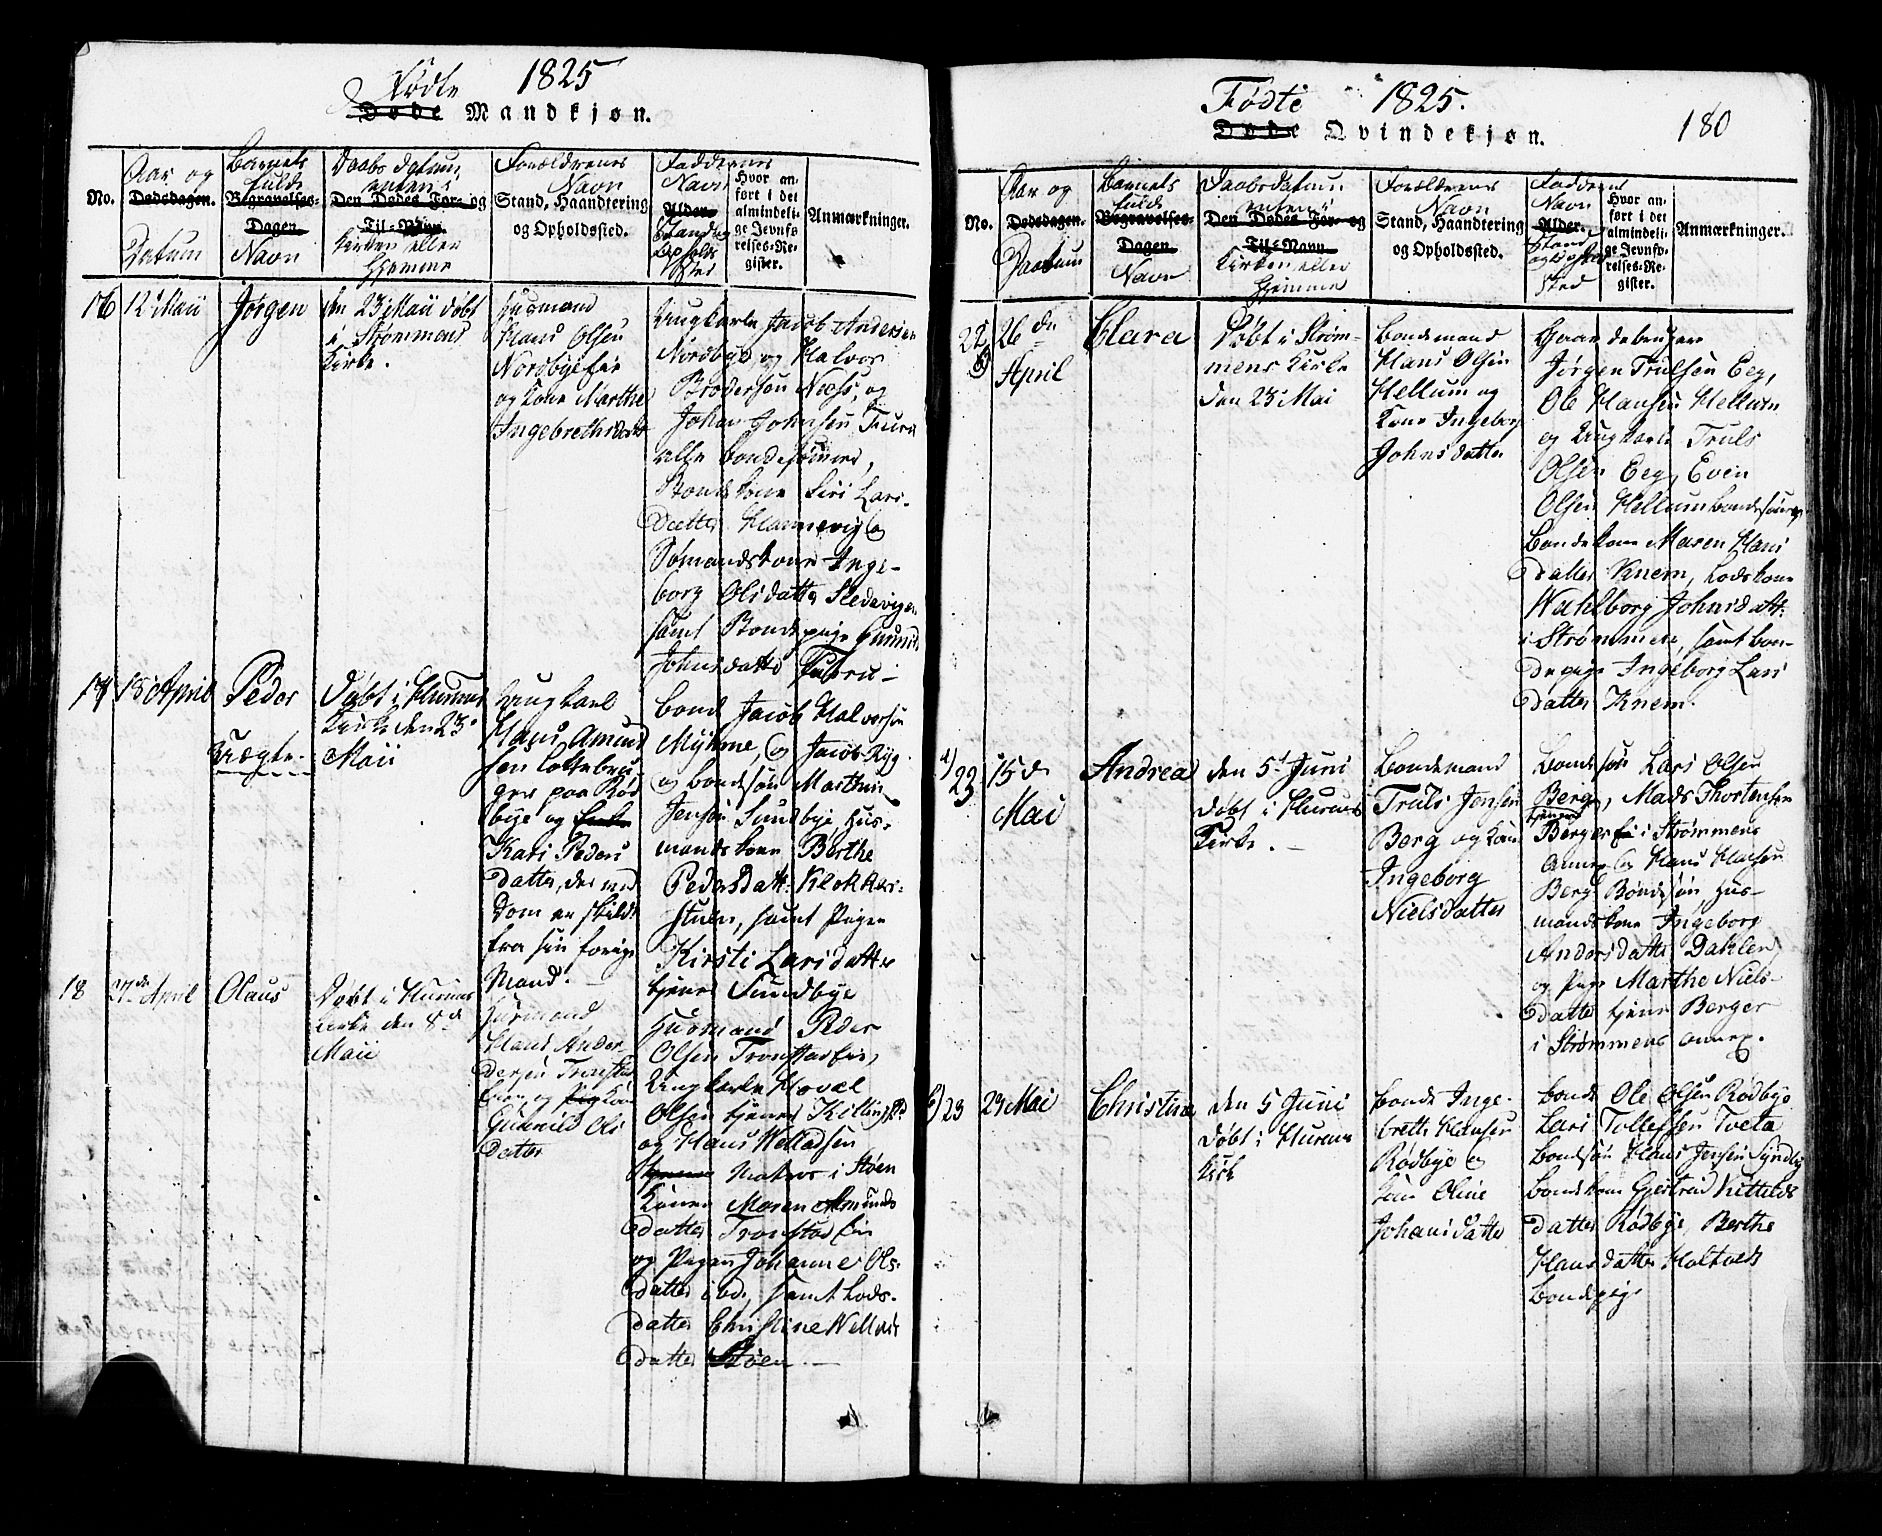 Fødte 1825
Døde Mandkjøn.
No.
Aar og
Dødsdagen.
Datum
Barnets
fulde
Begravelses-
Dagen
Navn
Daabs Datum
enten i
Den Dødes For- og
Til-Navn
Kirken eller
Hjemme
Forældrenes
Navn
Stand, Haandtering
og Opholdssted.
Faddernes
Navn
Alder
Hvor an-
ført i det
almindeli-
ge Jevnfø-
relses-Re-
gister.
Anmærkninger.
16
12 Maii
Jørgen
den 23 Maii døbt
i Strømmens
Kirke.
Husmand
Hans Olsen
Nordbye Eie
og Kone Marthe
Ingebrethsdatter
Ungkarle Jacob Andersen
Nordbye og Halvor
Brodersen Næss, og
Johan Johnsen
alle bondesønner,
Bondekone Siri Lars-
datter
Sømandskone Inge-
borg Olsdatter
samt Bondepige
Johnsdatter
17
15 April
Peder
Uægte.
Døbt i Hurums
Kirke den 23
Maii
Ungkarl
Hans Amund
sen
ger paa Rød
bye og
Kari Peders
datter, der ved
Dom er skildt
fra sin forrige
Mand.
bonde Jacob Halvorsen
Myhrne, og Jacob Ryg
og bondesøn Marthin
Jensen Sundbye, Hus-
mandskone Berthe
Pedersdatt: Klokker-
stuen, samt Pigen
Kirsti Larsdatter
tjener Sundbye
18
27de April
Olaus
Døbt i Hurums
Kirke den 8de
Maii
Husmand
Hans Anders
Gunnild Ols
datter
Husmand Peder
Olsen Tronstad Eie,
Ungkarle
Olsen tjener
og Hans Welladsen
i Støen
Konen Maren Amunds
datter Tronstad Eie
og Pigen Johanne Ols-
datter ibd, samt Lods-
datter Christine Wellads
datter Støen.
Fødte 1825.
Døde Qvindekjøn.
180
No.
Aar og
Dødsdagen.
Daatum
Barnets
fulde
Begravelses-
Dagen
Navn
Daabs Datum
enten i
Den Dødes For- og
Til-Navn
Kirken eller
Hjemme
Forældrenes
Navn
Stand, Haandtering
og Opholdssted.
Faddernes
Navn
Alder
Stand
sted
Hvor an-
ført i det
almindeli-
ge Jevnfø-
relses-Re-
gister.
Anmærkninger.
22
26de
April
Clara
Døbt i Strøm-
mens Kirke
den 23 Mai
Bondemand
Hans Olsen
Hellum og
Kone Ingeborg
Johnsdatter
Gaardebruger
Jørgen Trulsen Eeg,
Ole Hansen Hellum
og Ungkarle Truls
Olsen Eeg, Even
Olsen Hellum bondesønner
Bondekone Maren Hans
datter Knem, Lodskone
Wahlborg Johnsdatt:
i Strømmen, samt bon-
depige Ingeborg Lars
datter Knem.
23
15de
Mai
Andrea
den 5te Juni
døbt i Hurums
Kirke.
Bondemand
Truls Jensen
Berg og Kone
Ingeborg
Nielsdatter
Bondesøn Lars Olsen
Berg, Mads Thortensen
tjener
Berger i Strømmens
Annex og Hans Hansen
Berg Bondesøn, Hus-
mandskone Ingeborg
Andersdatter Dahlen,
og Pige Marthe Niels-
datter tjener Berger
i Strømmens annex.
23
29 Mai
Christine
den 5 Juni
døbt i Hurums
Kirk
Bonde Inge-
breth Hansen
Rødbye og
Oline
Johansdatter
bonde Ole Olsen Rødbye
Lars Tollefsen Tveta
bondesøn Hans Jensen Syndby
bondekone Gjertrud Kittelds
datter Rødbye, Berthe
Hansdatter
bondepige